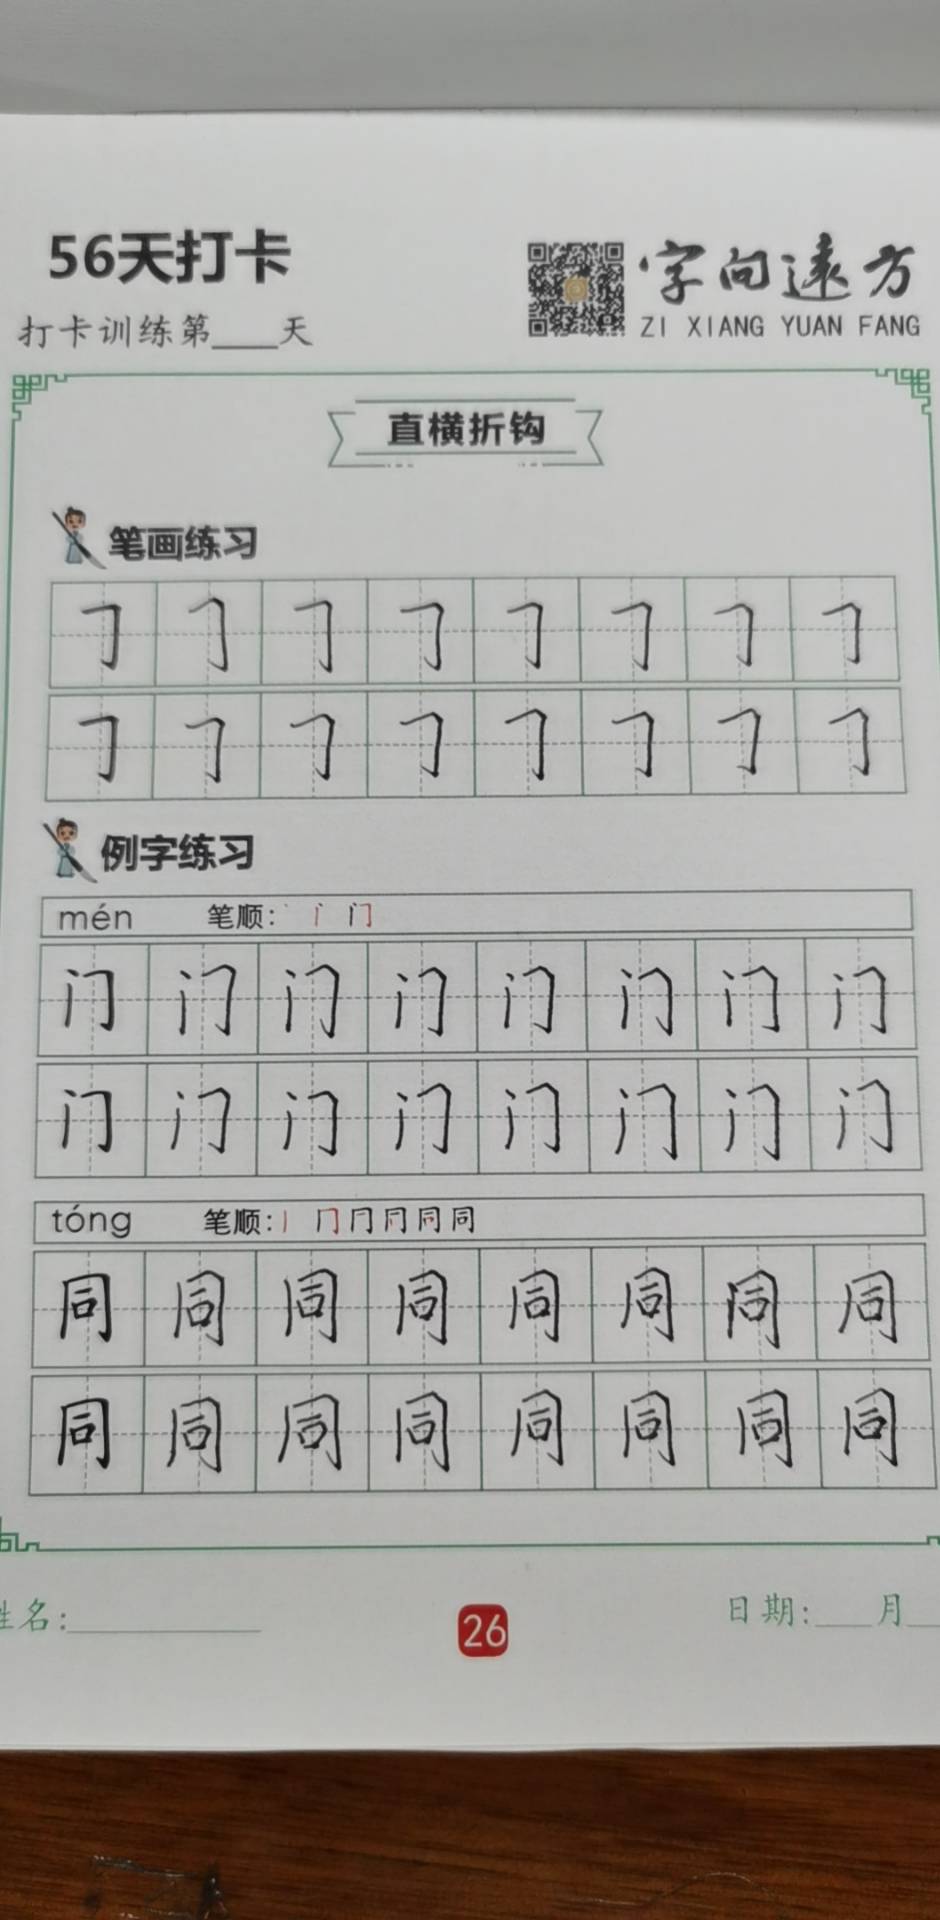 56天打卡
字向远方
打卡训练第____天
ZI XIANG YUAN FANG
直横折钩
笔画练习
𠃌 𠃌 𠃌 𠃌 𠃌 𠃌 𠃌 𠃌
𠃌 𠃌 𠃌 𠃌 𠃌 𠃌 𠃌 𠃌
例字练习
mén 笔顺：丶 门
门 门 门 门 门 门 门 门
门 门 门 门 门 门 门 门
tóng 笔顺：丨 冂 同
同 同 同 同 同 同 同 同
同 同 同 同 同 同 同 同
姓名:__________
26
日期:____月__